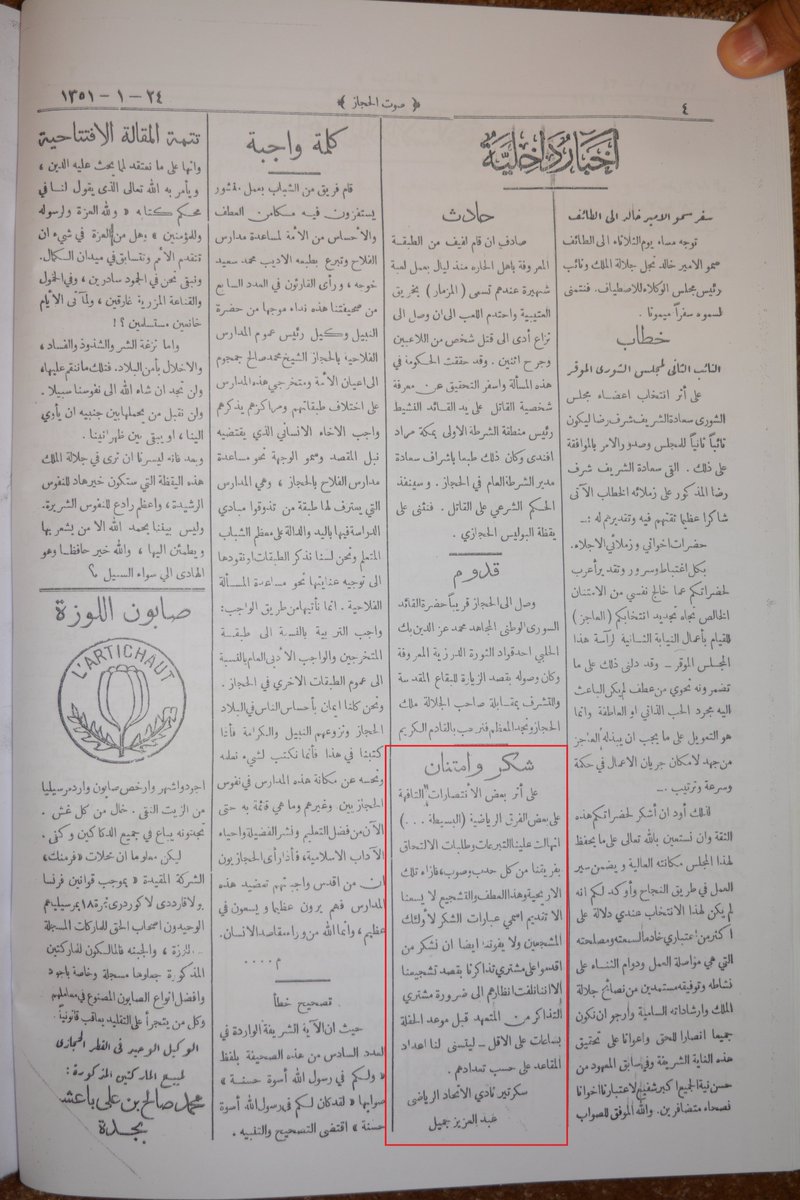 ٤
﴿ صوت الحجاز ﴾
٢٤ - ١ - ١٣٥١
أخبار داخلية
سفر سمو الامير خالد الى الطائف
توجه مساء يوم الثلاثاء الى الطائف
سمو الامير خالد نجل جلالة الملك ونائب
رئيس مجلس الوكلاء للاصطياف. فنتمنى
لسموه سفراً ميمونا .
خطاب
النائب الثانى لمجلس الشورى الموقر
على أثر انتخاب اعضاء مجلس
الشورى سعادة الشريف شرف رضا ليكون
نائباً ثانياً للمجلس وصدور الامر بالموافقة
على ذلك . القى سعادة الشريف شرف
رضا المذكور على زملائه الخطاب الآتى
شاكرا عظيما ثقتهم فيه وتقديرهم له :ـ
حضرات اخوانى وزملائى الاجلاء.
بكل اغتباط وسرور وتقدير أعرب
لحضراتكم عما خالج نفسي من الامتنان
الخالص تجاه تجديد انتخابكم ( العاجز )
للقيام بأعمال النيابة الثانية لرآسة هذا
المجلس الموقر ـ وقد دلنى ذلك على ما
تضمرونه نحوي من عطف لم يكن الباعث
اليه مجرد الحب الذاتى او العاطفة وانما
هو التعويل على ما يجب ان يبذله العاجز
من جهد لامكان جريان الاعمال في حكمة
وسرعة وترتيب .ـ
لذلك أود ان أشكر لحضراتكم هذه
الثقة وان نستعين بالله تعالى على ما يحفظ
لهذا المجلس مكانته العالية ويضمن سير
العمل في طريق النجاح وأوكد لكم انه
لم يكن لهذا الانتخاب عندي دلالة على
أكثر من اعتباري خادما لسمعته ومصلحته
التي هي مواصلة العمل ودوام الثناء على
نشاطه وتوفيقه مستمدين من نصائح جلالة
الملك وارشاداته السامية وأرجو ان نكون
جميعا انصارا للحق واعوانا على تحقيق
هذه الغاية الشريفة وفي سابق المعهود من
حسن نية الجميع اكبر شفيع لاعتبارنا اخوانا
نصحاء متضافرين. والله الموفق للصواب
حادث
صادف ان قام لفيف من الطبقة
المعروفة باهل الحاره منذ ليال بعمل لعبة
شهيرة عندهم تسمى ( المزمار ) بخريق
العتيبية واحتدم اللعب الى ان وصل الى
نزاع أدى الى قتل شخص من اللاعبين
وجرح اثنين . وقد حققت الحكومة في
هذه المسألة واسفر التحقيق عن معرفة
شخصية القاتل على يد القائد النشيط
رئيس منطقة الشرطة الاولى بمكة مراد
افندى وكان ذلك طبعا باشراف سعادة
مدير الشرطة العام في الحجاز . وسينفذ
الحكم الشرعي على القاتل . فنثنى على
يقظة البوليس الحجازي .
قدوم
وصل الى الحجاز قريباً حضرة القائد
السورى الوطنى المجاهد محمد عز الدين بك
الحلبي احد قواد الثورة الدرزية المعروفة
وكان وصوله بقصد الزيارة للبقاع المقدسة
والتشرف بمقابلة صاحب الجلالة ملك
الحجاز ونجد المعظم فنرحب بالقادم الكريم
شكر وامتنان
على أثر بعض الانتصارات التافهة
على بعض الفرق الرياضية ( البسيطة . . . )
انهالت علينا التبرعات وطلبات الالتحاق
بفريقنا من كل حدب وصوب، فازاء تلك
الاريحية وهذا العطف والتشجيع لا يسعنا
الا تقديم اسمى عبارات الشكر لأولئك
المشجعين ولا يفوتنا ايضا ان نشكر من
اقدموا على مشترى تذاكرنا بقصد تشجيعنا
الا اننا نلفت انظارهم الى ضرورة مشترى
التذاكر من المتعهد قبل موعد الحفلة
بساعات على الاقل ـ ليتسنى لنا اعداد
المقاعد على حسب تعدادهم .
سكرتير نادي الاتحاد الرياضى
عبد العزيز جميل
كلمة واجبة
قام فريق من الشباب بعمل منشور
يستفزون فيه مكامن العطف
والأحساس من الأمة لمساعدة مدارس
الفلاح وتبرع بطبعه الاديب محمد سعيد
خوجه ، ورأى القارئون في العدد السابع
من صحيفتنا هذه نداء موجها من حضرة
النبيل وكيل رئيس عموم المدارس
الفلاحية بالحجاز الشيخ محمد صالح جمجوم
الى اعيان الأمة ومتخرجي هذه المدارس
على اختلاف طبقاتهم ومراكزهم يذكرهم
واجب الاخاء الانساني الذي يقتضيه
نبل المقصد وسمو الوجهة نحو مساعدة
مدارس الفلاح بالحجاز ، وهي المدارس
التي يعترف لها طبقة من تذوقوا مبادي
الدراسة فيها باليد والدالة على معظم الشباب
المتعلم ونحن لسنا نذكر الطبقات او نقودها
الى توجيه عنايتها نحو مساعدة المسألة
الفلاحية . انما نأتيها من طريق الواجب:
واجب التربية بالنسبة الى طبقة
المتخرجين والواجب الأدبى العام بالنسبة
الى عموم الطبقات الاخري في الحجاز .
ونحن كلنا ايمان بأحساس الناس في البلاد
الحجاز ونزوعهم النبيل والكرامة فأذا
كتبنا في هذا فأنما نكتب لشيء نعلمه
ونحسه عن مكانة هذه المدارس في نفوس
الحجازيين وغيرهم وما هي قائمة به حتى
الآن من فضل التعليم ونشر الفضيلة واحياء
الآداب الاسلامية، فأذا رأى الحجازيون
ان من اقدس واجبهم تعضيد هذه
المدارس فهم يرون عظيما ويسعون في
عظيم، وانما الله من وراء مقاصد الانسان.
م . . . .
تصحيح خطأ
حيث ان الآية الشريفة الواردة في
العدد السادس من هذه الصحيفة بلفظ
« ولكم في رسول الله أسوة حسنة »
صوابها « لقد كان لكم في رسول الله أسوة
حسنة » اقتضى التصحيح والتنبيه .
تتمة المقالة الافتتاحية
وانها على ما نعتقد لما يحث عليه الدين ،
ويأمر به الله تعالى الذى يقول لنا في
محكم كتابه « ولله العزة ولرسوله
وللمؤمنين » وهل من العزة في شيء ان
تتقدم الأمم وتتسابق في ميدان الكمال.
ونبقى نحن في الجمود سادرين ، وفي الخمول
والقناعة المزرية غارقين ، ولمآتى الأيام
خانعين مستسلمين ؟ !
واما نزغة الشر والشذوذ والفساد ،
والاخلال بأمن البلاد. فتلك ما ننقم عليها،
ولن تجد ان شاء الله الى نفوسنا سبيلا .
ولن نقبل من يحملها بين جنبيه ان يأوي
الينا ، او يبقى بين ظهرانينا .
وبعد فانه ليسرنا ان نرى في جلالة الملك
هذه اليقظة التي ستكون خير هاد للنفوس
الرشيدة ، واعظم رادع للنفوس الشريرة.
وليس بيننا بحمد الله الا من يشعر بها
ويطمئن اليها ، والله خير حافظا وهو
الهادى الى سواء السبيل ؟
صابون اللوزة
L'ARTICHAUT
اجود واشهر وارخص صابون وارد مرسيليا
من الزيت النقى . خال من كل غش .
تجدونه يباع في جميع الدكاكين وكفى .
ليكن معلوما ان محلات « فرمنك،
الشركة المقيدة » بموجب قوانين فرنسا
بولاقارددى لاكوردرى نمرة ١٨ بمرسيليا هم
الوحيدون اصحاب الحق للماركات المسجلة
والجبنه فالمالكون للماركتين
المذكورة جعلوها مسجلة وخاصة باجود
وافضل انواع الصابون المصنوع في معاملهم
وكل من يتجرأ على التقليد يعاقب قانونياً.
الوكيل الوحيد فى القطر الحجازى
لمبيع الماركتين المذكورة :
محمد صالح بن على باعشد
بجدة